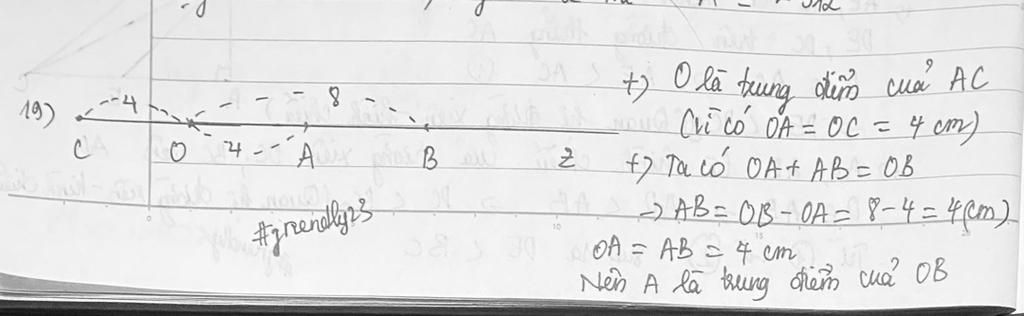 19)
4
8
C O 4 A B z
#greendly23
+) O là trung điểm của AC
(Vì có OA = OC = 4 cm)
+) Ta có OA + AB = OB
→ AB = OB - OA = 8 - 4 = 4(cm)
OA = AB = 4 cm
Nên A là trung điểm của OB